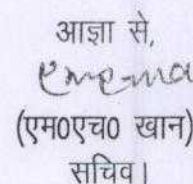 आज्ञा से,
(एम0एच0 खान)
सचिव।